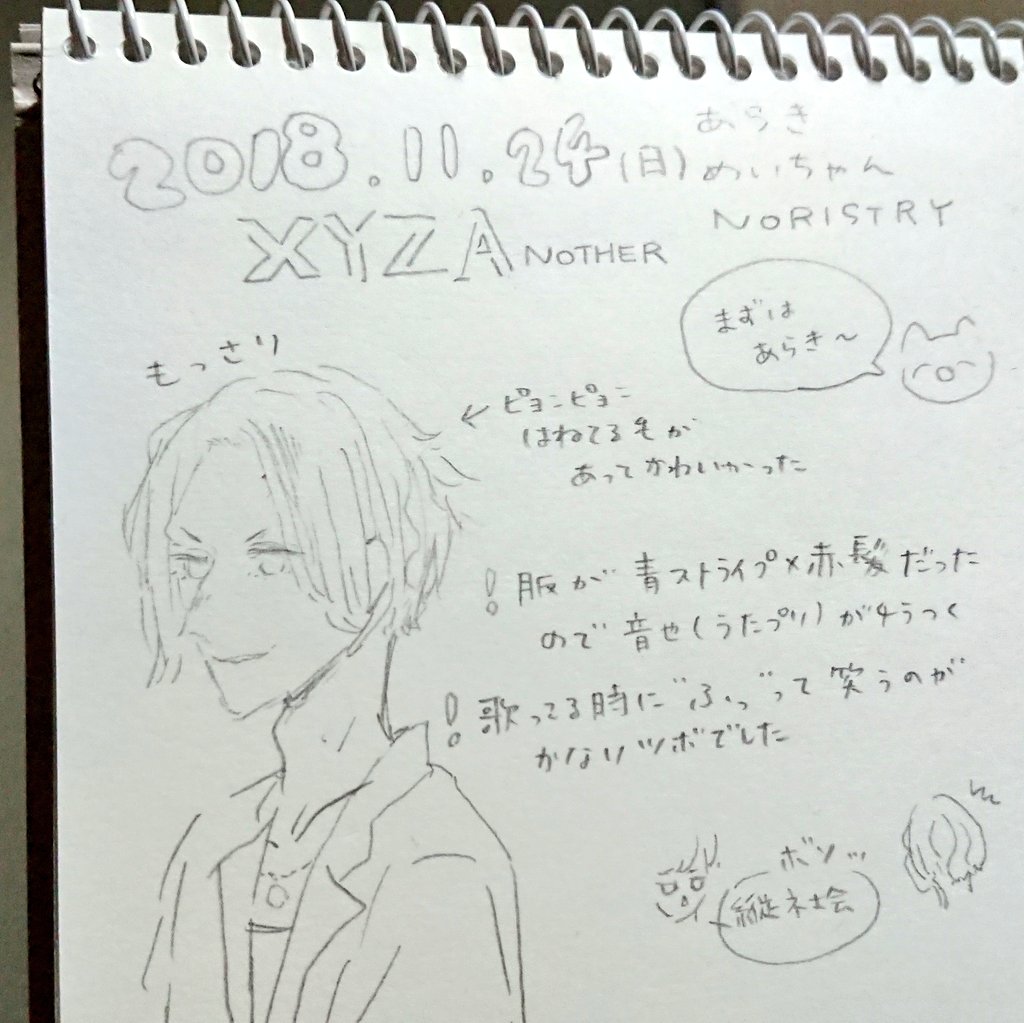 2018.11.24(日)
XYZA NOTHER
あらき
めいちゃん
NORISTRY
まずは
あらき〜
もっさり
← ピョコピョコ
はねてる毛が
あってかわいかった
! 服が青ストライプ×赤髪だった
ので音也(うたプリ)がチラつく
! 歌ってる時に"ふっ"って笑うのが
かなりツボでした
ボソッ
縦ネ土会